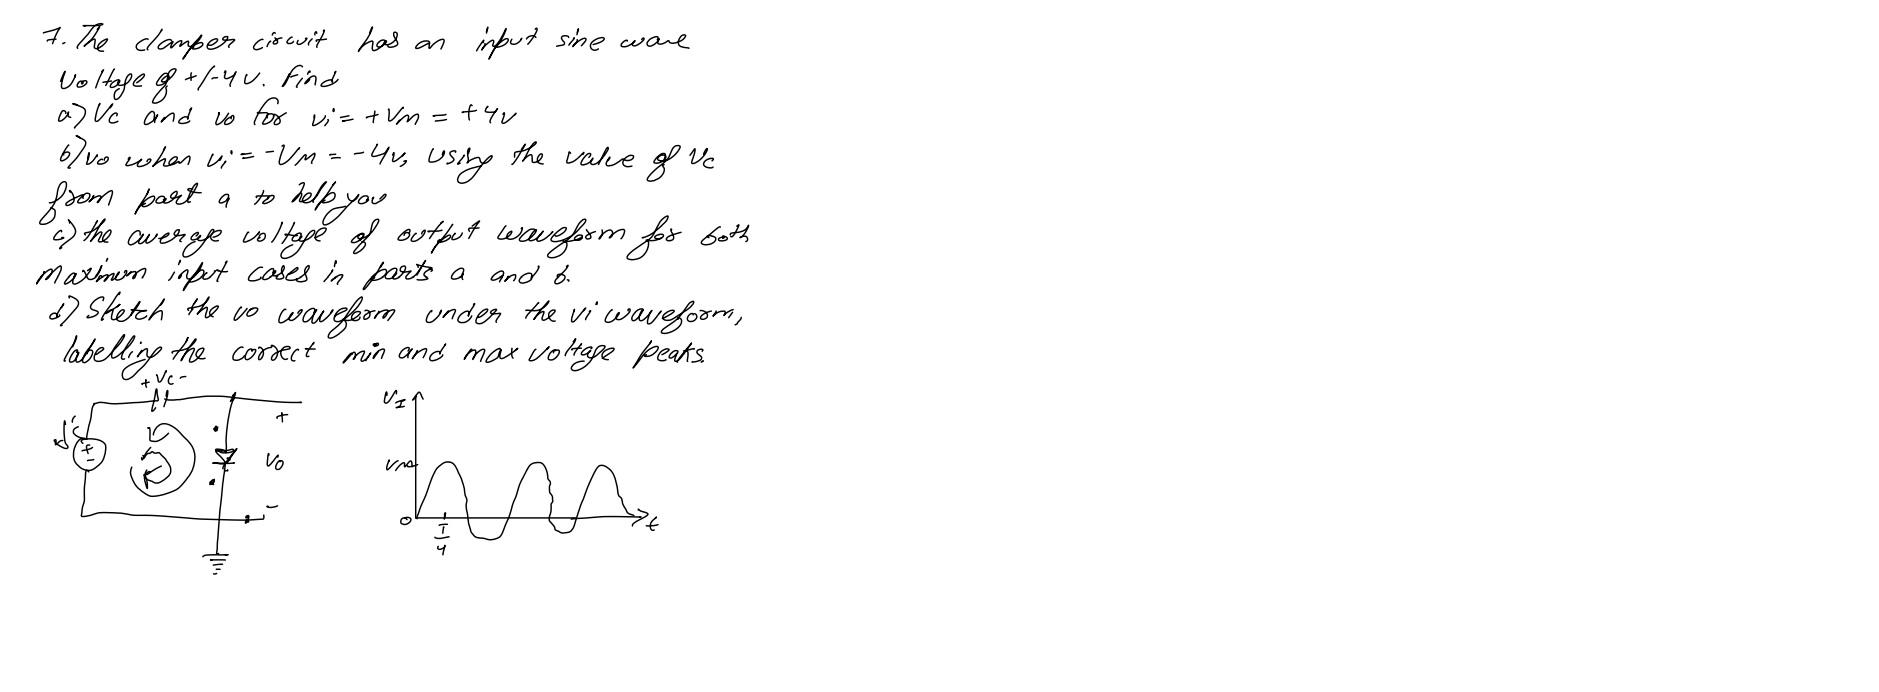 7. The clamper circuit has an input sine wave
voltage of +/-4v. Find
a) Vc and vo for vi = +VM = +4v
b) vo when vi = -VM = -4v, using the value of Vc
from part a to help you
c) the average voltage of output waveform for both
maximum input cases in parts a and b.
d) Sketch the vo waveform under the vi waveform,
labelling the correct min and max voltage peaks.
+ Vc -
+
+
-
Vo
-
VI
VM
0
T
4
t